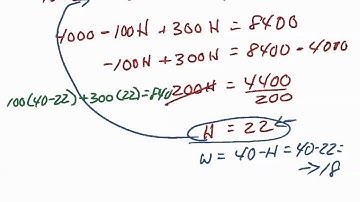 4000 - 100H + 300H = 8400
-100H + 300H = 8400 - 4000
100(40-22) + 300(22) = 840
200H = 4400
200
H = 22
W = 40-H = 40-22 =
→ 18